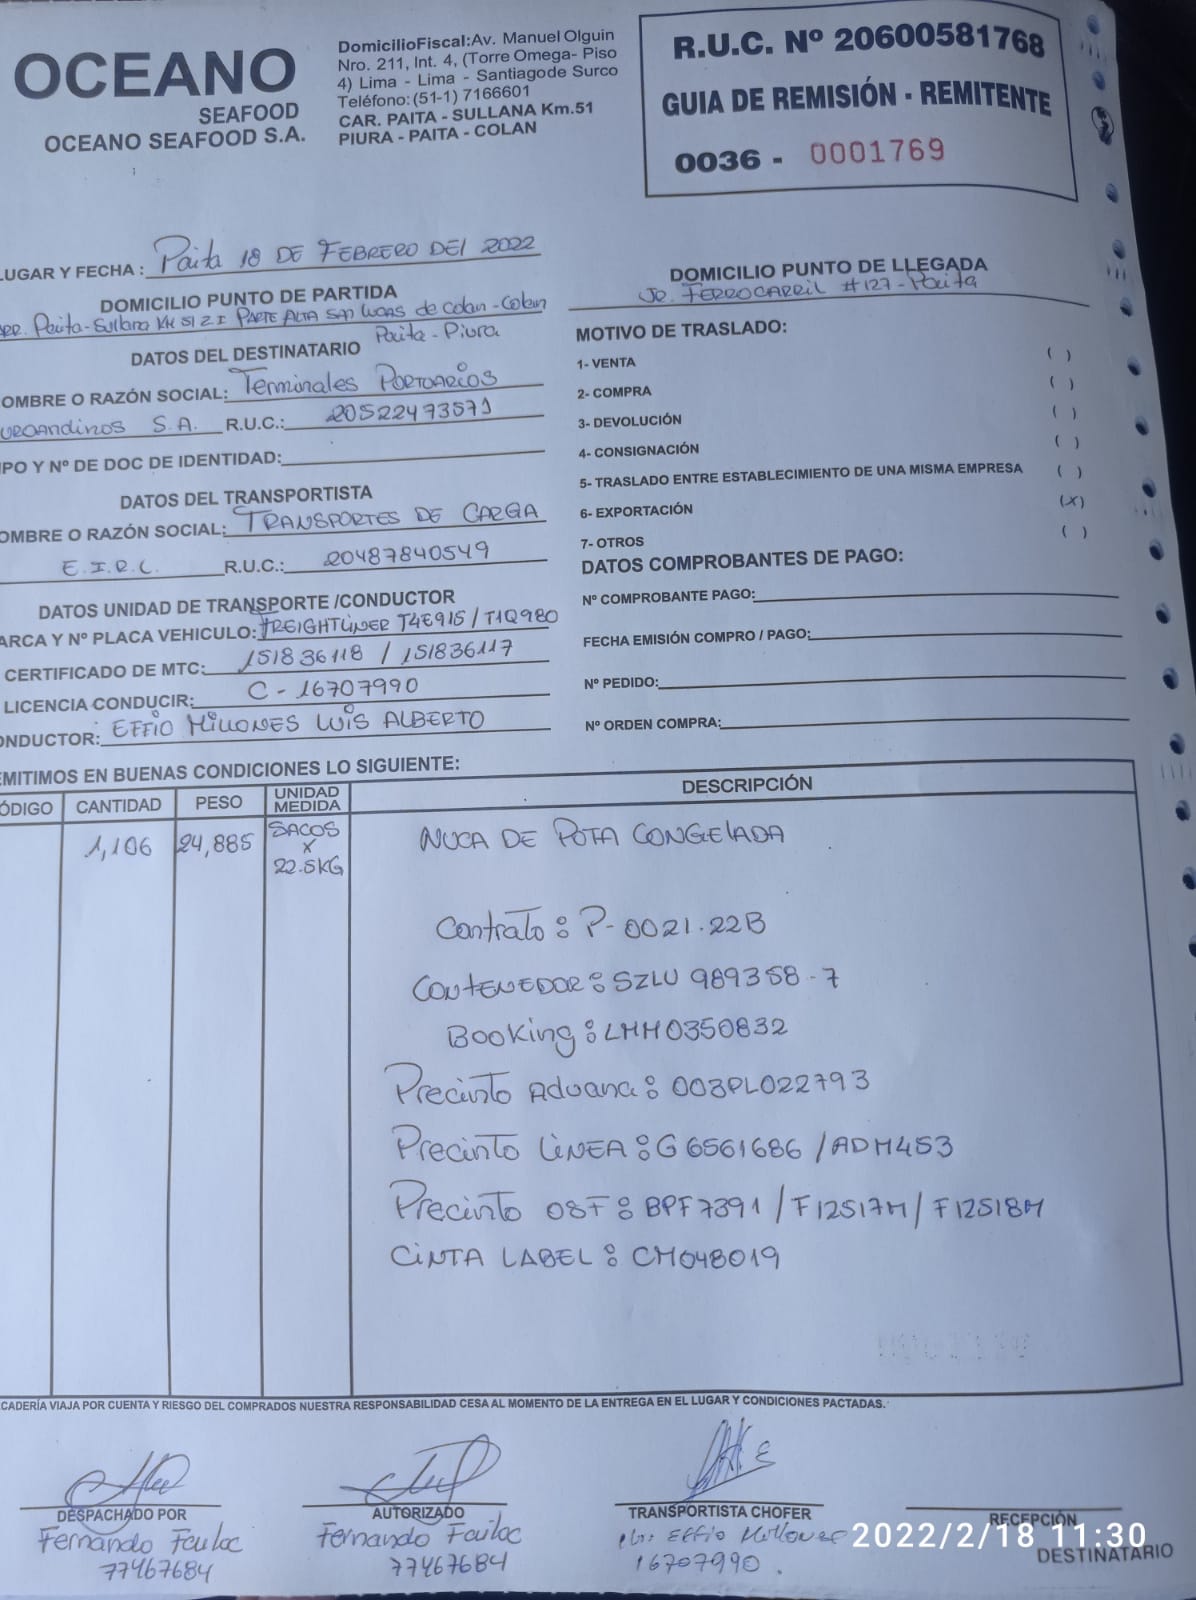 OCEANO
SEAFOOD
OCEANO SEAFOOD S.A.
DomicilioFiscal: Av. Manuel Olguin
Nro. 211, Int. 4, (Torre Omega- Piso
4) Lima - Lima - Santiago de Surco
Teléfono: (51-1) 7166601
CAR. PAITA - SULLANA Km.51
PIURA - PAITA - COLAN
R.U.C. Nº 20600581768
GUIA DE REMISIÓN - REMITENTE
0036 - 0001769
LUGAR Y FECHA : Paita 18 DE FEBRERO DEl 2022
DOMICILIO PUNTO DE PARTIDA
Paita-Sullana KM 51 Z I PARTE ALTA SAN LUCAS de Colan-Colan
Paita-Piura
DOMICILIO PUNTO DE LLEGADA
JR. FERROCARRIL #127-Paita
DATOS DEL DESTINATARIO
OMBRE O RAZÓN SOCIAL: Terminales PORTUARIOS
uroandinos S.A. R.U.C.: 20522473571
IPO Y Nº DE DOC DE IDENTIDAD:
DATOS DEL TRANSPORTISTA
OMBRE O RAZÓN SOCIAL: TRANSPORTES DE CARGA
E.I.R.L. R.U.C.: 20487840549
DATOS UNIDAD DE TRANSPORTE /CONDUCTOR
ARCA Y Nº PLACA VEHICULO: FREIGHTLINER T4E915 / T1Q980
CERTIFICADO DE MTC: 151836118 / 151836117
LICENCIA CONDUCIR: C-16707990
ONDUCTOR: EFFIO MILLONES LUIS ALBERTO
MOTIVO DE TRASLADO:
1- VENTA ( )
2- COMPRA ( )
3- DEVOLUCIÓN ( )
4- CONSIGNACIÓN ( )
5- TRASLADO ENTRE ESTABLECIMIENTO DE UNA MISMA EMPRESA ( )
6- EXPORTACIÓN (X)
7- OTROS ( )
DATOS COMPROBANTES DE PAGO:
Nº COMPROBANTE PAGO:
FECHA EMISIÓN COMPRO / PAGO:
Nº PEDIDO:
Nº ORDEN COMPRA:
EMITIMOS EN BUENAS CONDICIONES LO SIGUIENTE:
ÓDIGO CANTIDAD PESO UNIDAD MEDIDA DESCRIPCIÓN
1,106 24,885 SACOS X 22.5KG NUCA DE POTA CONGElADA
Contrato : P-0021.22B
CONTENEDOR : SZLU 989358-7
Booking : LMM0350832
Precinto Aduana : 003PL022793
Precinto LiNEA : G6561686 / ADM453
Precinto OSF : BPF7391 / F12517M / F12518M
CiNTA LABEL : CM048019
CADERÍA VIAJA POR CUENTA Y RIESGO DEL COMPRADOS NUESTRA RESPONSABILIDAD CESA AL MOMENTO DE LA ENTREGA EN EL LUGAR Y CONDICIONES PACTADAS.
DESPACHADO POR
Fernando Fauloc
77467684
AUTORIZADO
Fernando Fauloc
77467684
TRANSPORTISTA CHOFER
Effio Millones
16707990.
RECEPCIÓN
DESTINATARIO
2022/2/18 11:30